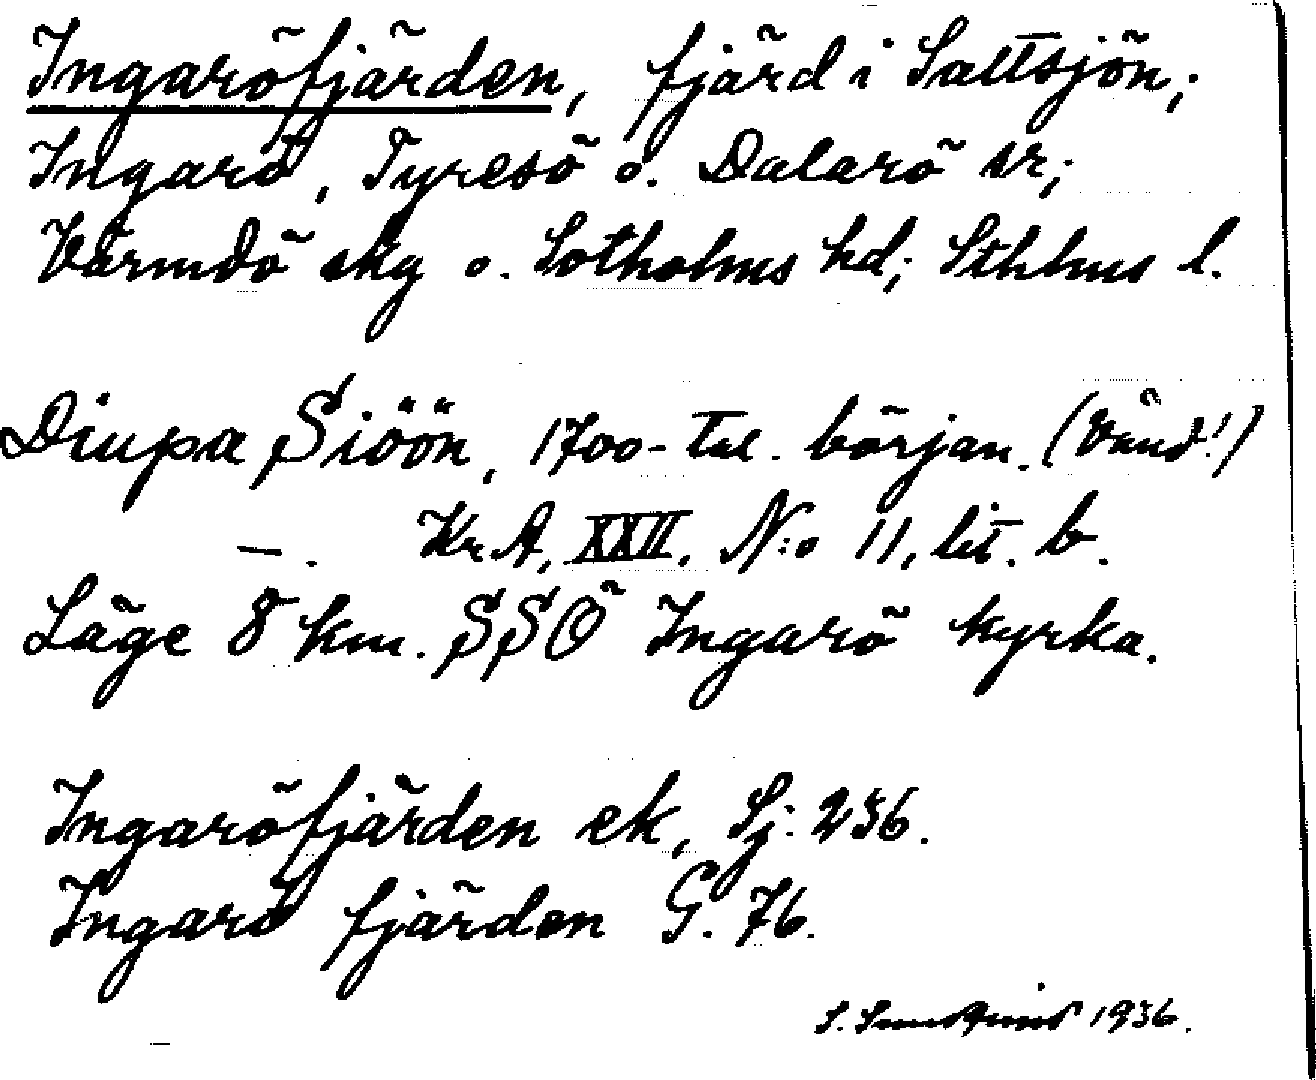 Ingaröfjärden, fjärd i Saltsjön;
Ingarö, Tyresö o. Dalarö sr;
Värmdö skg o. Sotholms hd; Sthlms l.
Diupa Siöön, 1700-tal. början. (Vänd!)
—. Kr.A. XXII. N:o 11, lit. b.
Läge 8 km. SSÖ Ingarö kyrka.
Ingaröfjärden ek, Sj. 236.
Ingarö fjärden G. 76.
S. 1936.